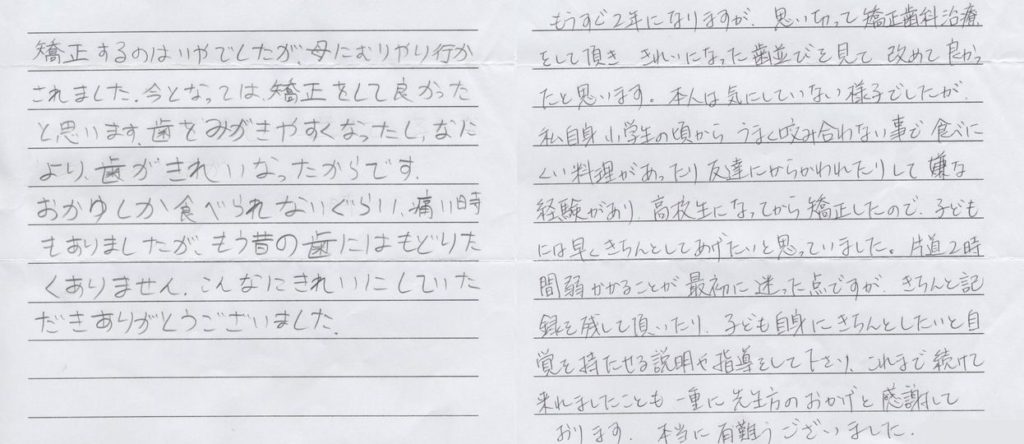 矯正するのはいやでしたが、母にむりやり行か
されました。今となっては、矯正をして良かった
と思います。歯をみがきやすくなったし、なに
より、歯がきれいなったからです。
おかゆしか食べられないぐらい、痛い時
もありましたが、もう昔の歯にはもどりた
くありません。こんなにきれいにしていた
だきありがとうございました。
もうすぐ2年になりますが、思い切って矯正歯科治療
をして頂き きれいになった歯並びを見て 改めて良かっ
たと思います。本人は気にしていない様子でしたが、
私自身 小学生の頃から うまく咬み合わない事で 食べに
くい料理があったり 友達にからかわれたりして 嫌な
経験があり、高校生になってから矯正したので、子ども
には早くきちんとしてあげたいと思っていました。片道2時
間弱かかることが 最初に迷った点ですが、きちんと記
録を残して頂いたり、子ども自身にきちんとしたいと自
覚を持たせる説明や指導をして下さり、これまで続けて
来れましたことも 一重に先生方のおかげと感謝して
おります。 本当に有難うございました。